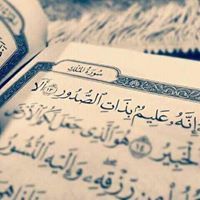 سُورَةُ المُلْكِ
إِنَّهُۥ عَلِيمٌۢ بِذَاتِ ٱلصُّدُورِ ١٣ أَلَا
ٱلْخَبِيرُ ١٤ هُوَ ٱلَّذِى جَعَلَ لَكُمُ ٱلْأَرْضَ
مِن رِّزْقِهِۦ وَإِلَيْهِ ٱلنُّشُورُ